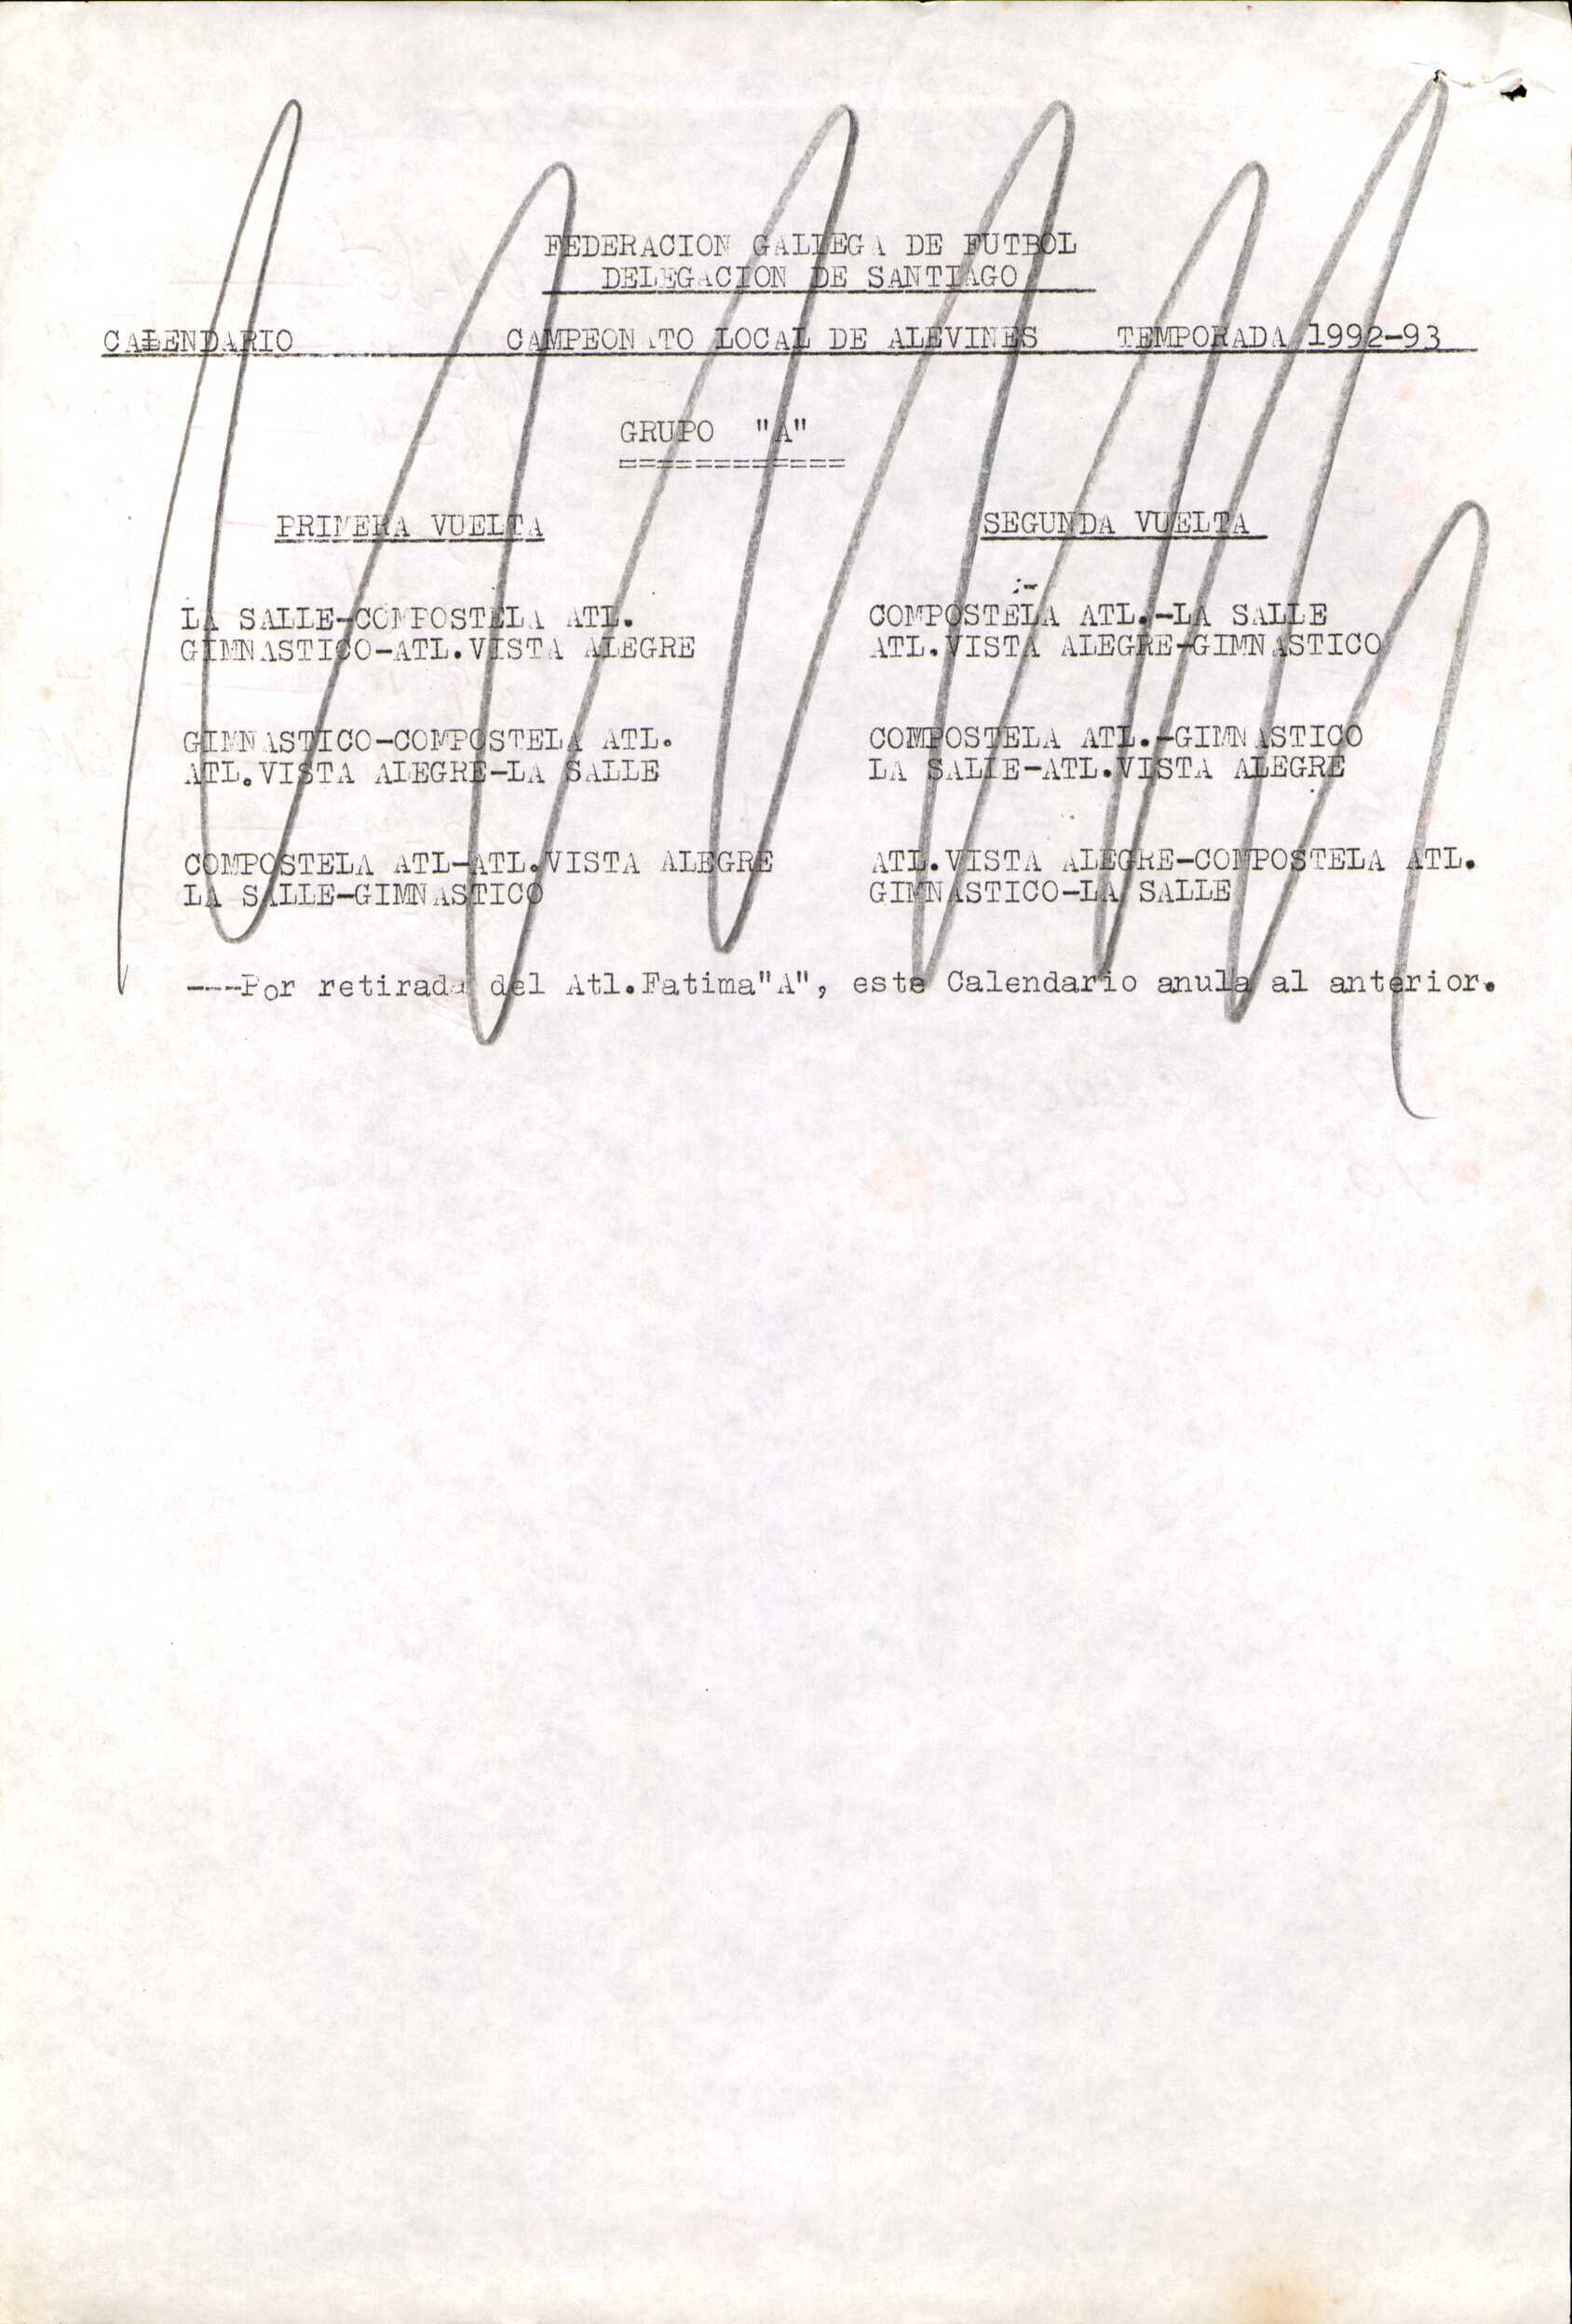 FEDERACION GALLEGA DE FUTBOL
DELEGACION DE SANTIAGO
CALENDARIO CAMPEONATO LOCAL DE ALEVINES TEMPORADA 1992-93
GRUPO "A"
============
PRIMERA VUELTA
LA SALLE-COMPOSTELA ATL.
GIMNASTICO-ATL.VISTA ALEGRE
GIMNASTICO-COMPOSTELA ATL.
ATL.VISTA ALEGRE-LA SALLE
COMPOSTELA ATL-ATL.VISTA ALEGRE
LA SALLE-GIMNASTICO
SEGUNDA VUELTA
COMPOSTELA ATL.-LA SALLE
ATL.VISTA ALEGRE-GIMNASTICO
COMPOSTELA ATL.-GIMNASTICO
LA SALLE-ATL.VISTA ALEGRE
ATL.VISTA ALEGRE-COMPOSTELA ATL.
GIMNASTICO-LA SALLE
----Por retirada del Atl.Fatima"A", este Calendario anula al anterior.